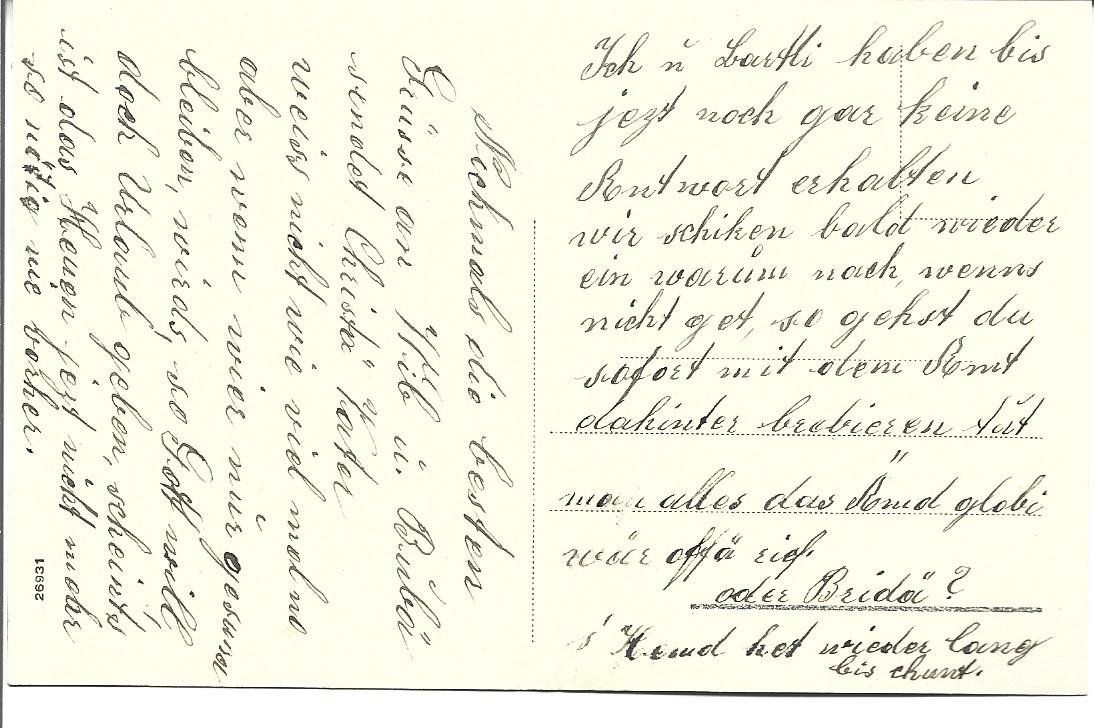 Ich ŭ Bartli haben bis
jezt noch gar keine
Antwort erhalten
wir schiken bald wieder
ein warŭm nach, wenns
nicht get, so gehst du
sofort mit dem Amt
dahinter brobieren tŭt
man alles das Amd globi
wär offä rich.
oder Bridä?
s' Hemd het wieder lang
bis chunt.
Nachmals die besten
Grüse an Wib ŭ. Bŭbä
sendet Christä Vater
weiss nicht wie viel mal no
aber wenn wier nŭr gesund
bleiben, wirds, so Gott will
doch Urlaub geben, scheints
ist das Heuen jezt nicht mehr
so nötig wie vorher.
26931